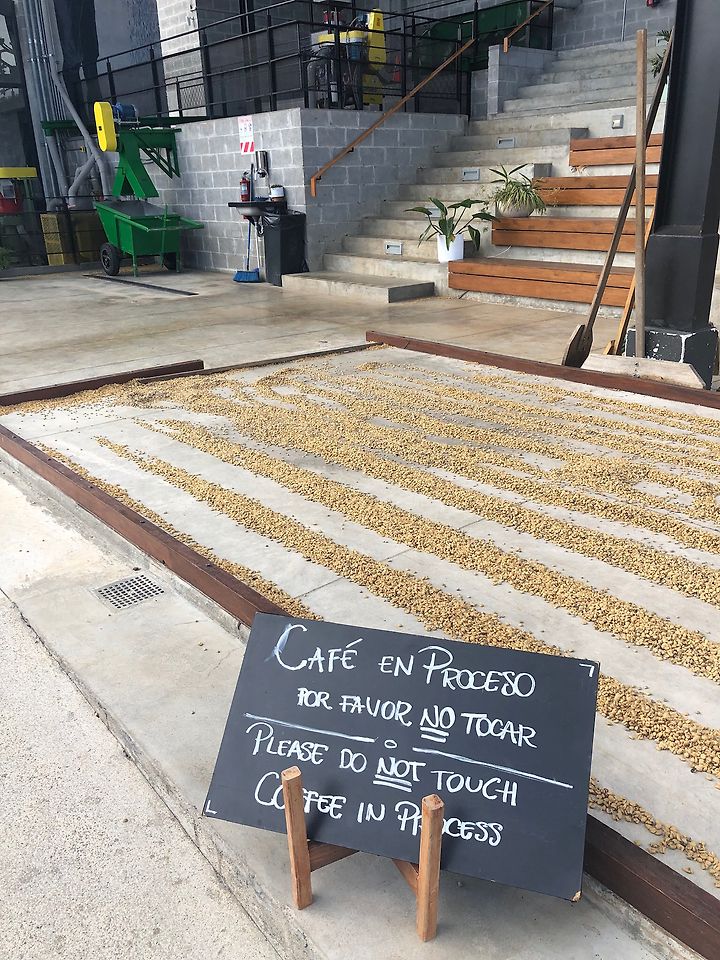 CAFÉ EN PROCESO
POR FAVOR NO TOCAR
PLEASE DO NOT TOUCH
COFFEE IN PROCESS